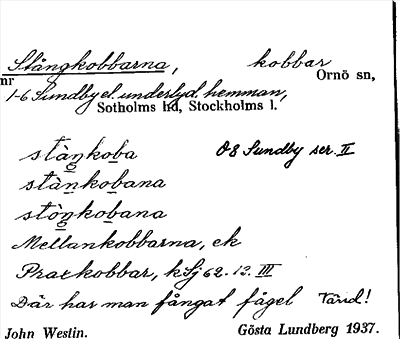 Stångkobbarna, kobbar
nr Ornö sn,
1-6 Sundby el. underlyd. hemman,
Sotholms hd, Stockholms l.
stàŋkoba Ö8 Sundby ser. II
stàŋkobana
stòŋkobana
Mellankobbarna, ek
Prackobbar, kSj 62. 12. III
Där har man fångat fågel Tärid!
John Westin. Gösta Lundberg 1937.